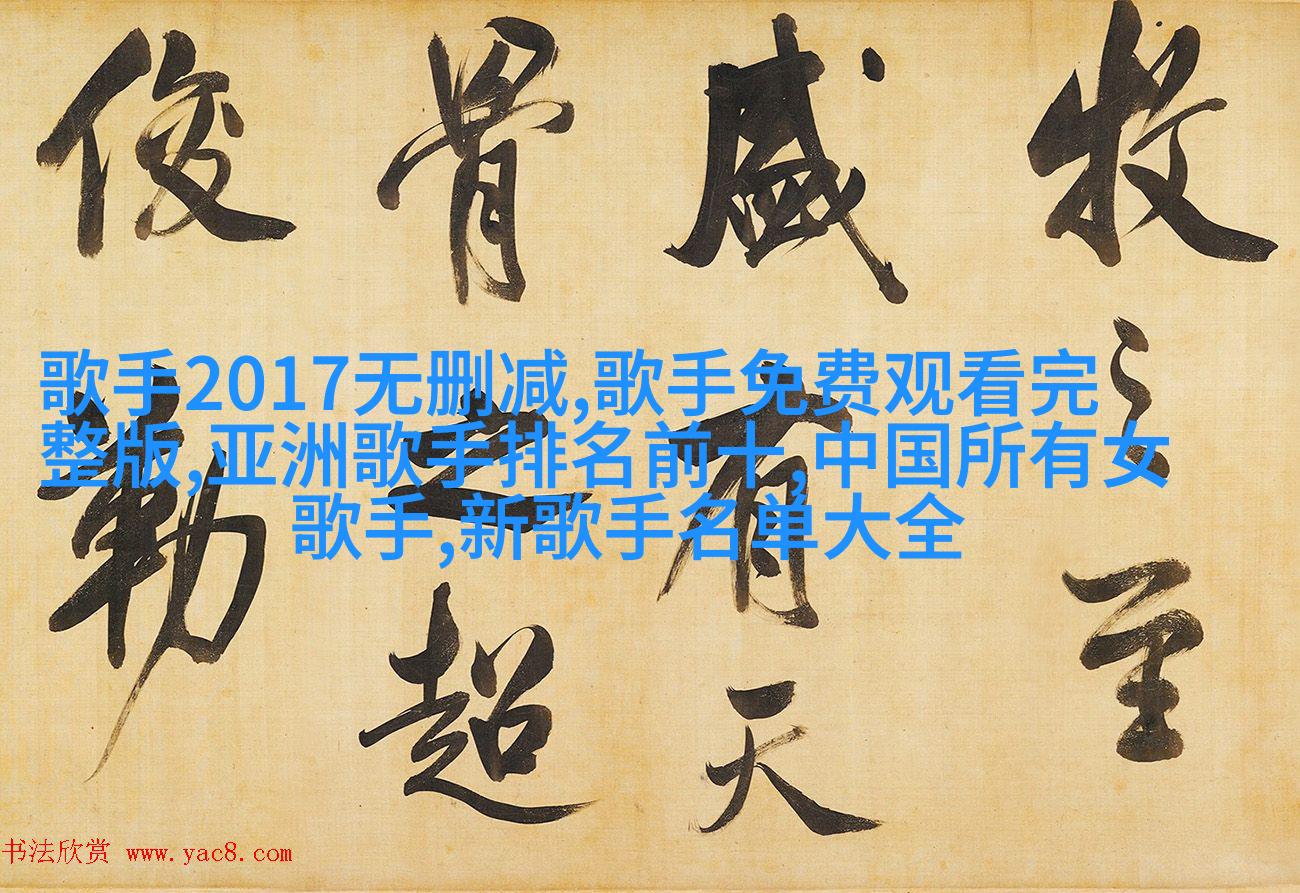 牧之至
盛有天
骨之超
俊勒
歌手2017无删减,歌手免费观看完
整版,亚洲歌手排名前十,中国所有女
歌手,新歌手名单大全
书法欣赏 www.yac8.com